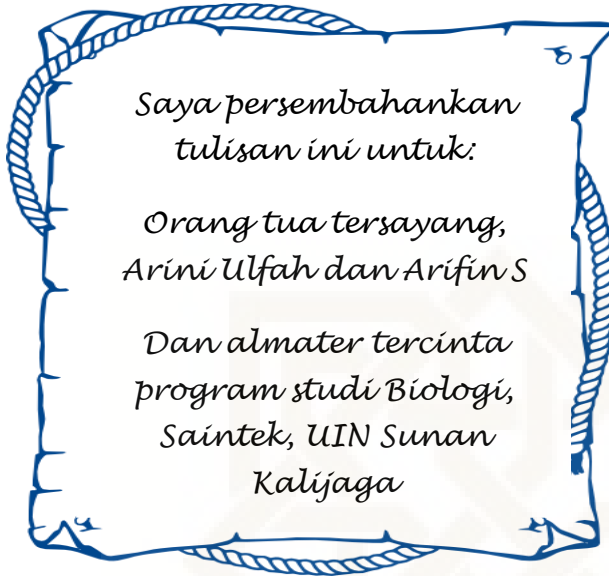 Saya persembahankan
tulisan ini untuk:
Orang tua tersayang,
Arini Ulfah dan Arifin S
Dan almater tercinta
program studi Biologi,
Saintek, UIN Sunan
Kalijaga